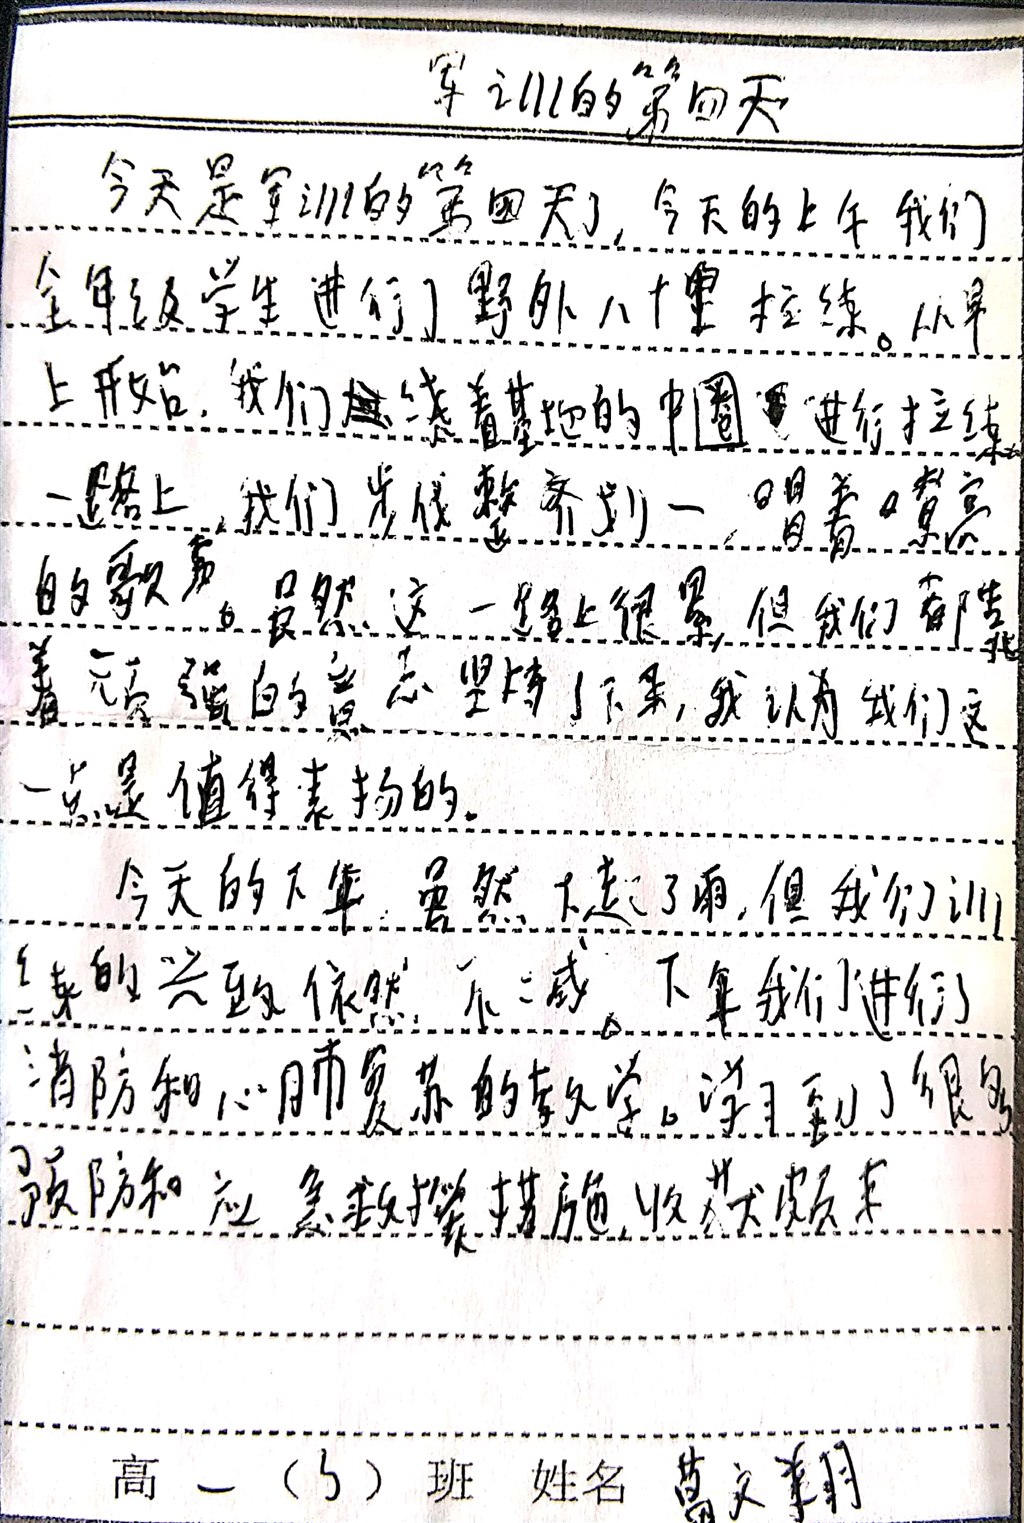 军训的第四天
今天是军训的第四天了，今天的上午我们
全年级学生进行了野外八十里拉练。从早
上开始，我们绕着基地的中圈进行拉练
一路上，我们步伐整齐划一，唱着嘹亮
的歌声。虽然这一路上很累，但我们都凭
着顽强的意志坚持了下来，我认为我们这
一点是值得表扬的。
今天的下午，虽然下起了雨，但我们训
练的兴致依然不减。下午我们进行了
消防和心肺复苏的教学。学习到了很多
预防和应急救援措施，收获颇丰
高一（5）班 姓名 文翔